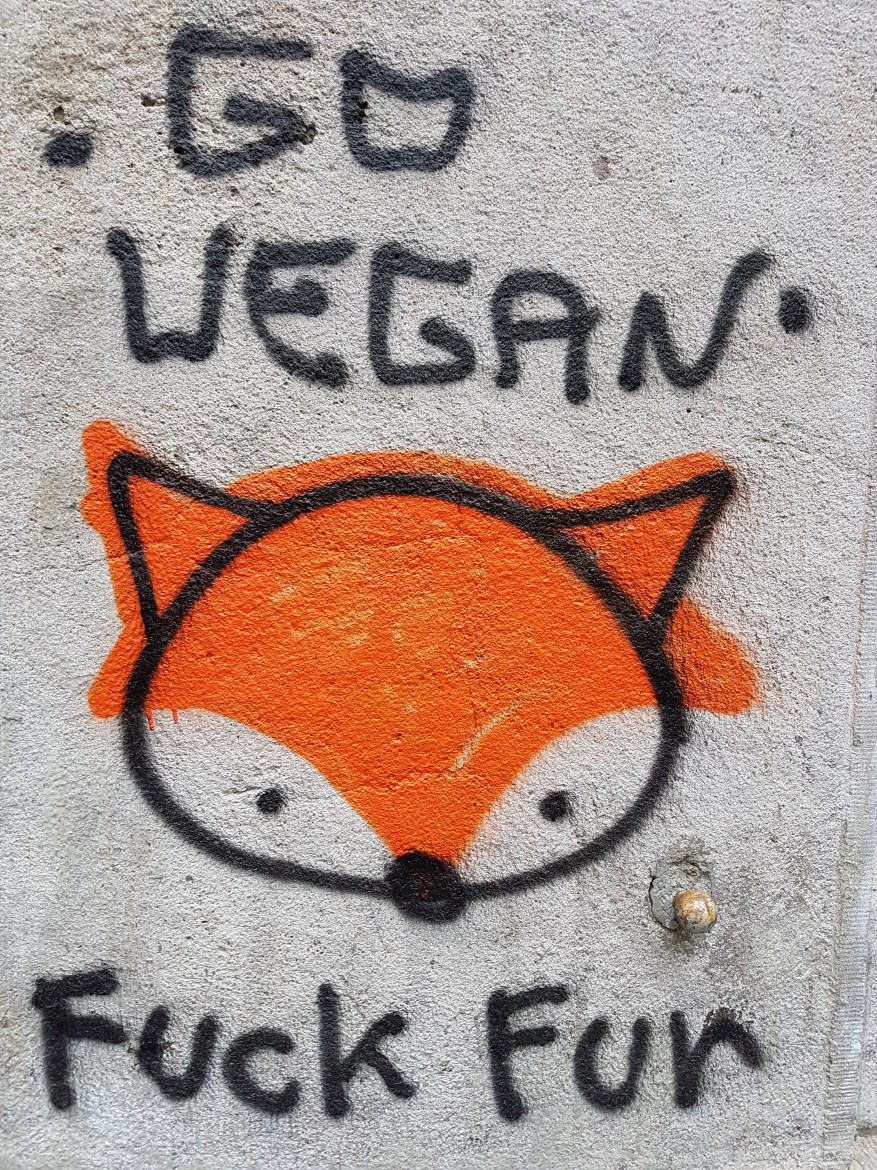 .GO
VEGAN·
Fuck Fur